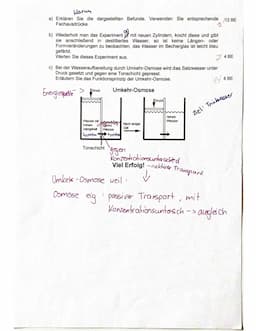 Warum
a) Erklären Sie die dargestellten Befunde. Verwenden Sie entsprechende /12 BE
Fachausdrücke.
b) Wiederholt man das Experiment mit neuen Zylindern, kocht diese und gibt
sie anschließend in destilliertes Wasser, so ist keine Längen- oder
Formveränderungen zu beobachten, das Wasser im Becherglas ist leicht blau
gefärbt.
Werten Sie dieses Experiment aus. / 4 BE
c) Bei der Wasseraufbereitung durch Umkehr-Osmose wird das Salzwasser unter
Druck gesetzt und gegen eine Tonschicht gepresst.
Erläutern Sie das Funktionsprinzip der Umkehr-Osmose. / 4 BE
Umkehr-Osmose
Druck
Druck
Ziel: Trinkwasser
Tonschicht
gegen
Konzentrationsunterschied
Viel Erfolg! → aktiver Transport
Umkehr-Osmose weil:
Osmose eig. passiver Transport, mit
Konzentrationsuntersch → ausgleich